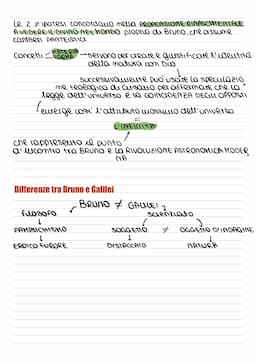 Le 2 ≠ ipotesi concordano nella PROPENSIONE RINASCIMENTALE
A VEDERE IL DIVINO NEL MONDO propria di Bruno, che assume
caratteri panteistici
Concetti servono per creare e giustificare l'identità
della natura con Dio
successivamente può usare la speculazio
ne teologica di Cusano per affermare che la
legge dell'universo è la coincidenza degli opposti
emerge così l'attributo massimo dell'universo
=
L'INFINITÀ
che rappresenta il punto
d'incontro tra BRUNO e la RIVOLUZIONE ASTRONOMICA MODER
NA
Differenze tra Bruno e Galilei
BRUNO ≠ GALILEI
FILOSOFO SCIENZIATO
PANPSICHISMO SOGGETTO ≠ OGGETTO D'INDAGINE
EROICO FURORE DISTACCATO NATURA